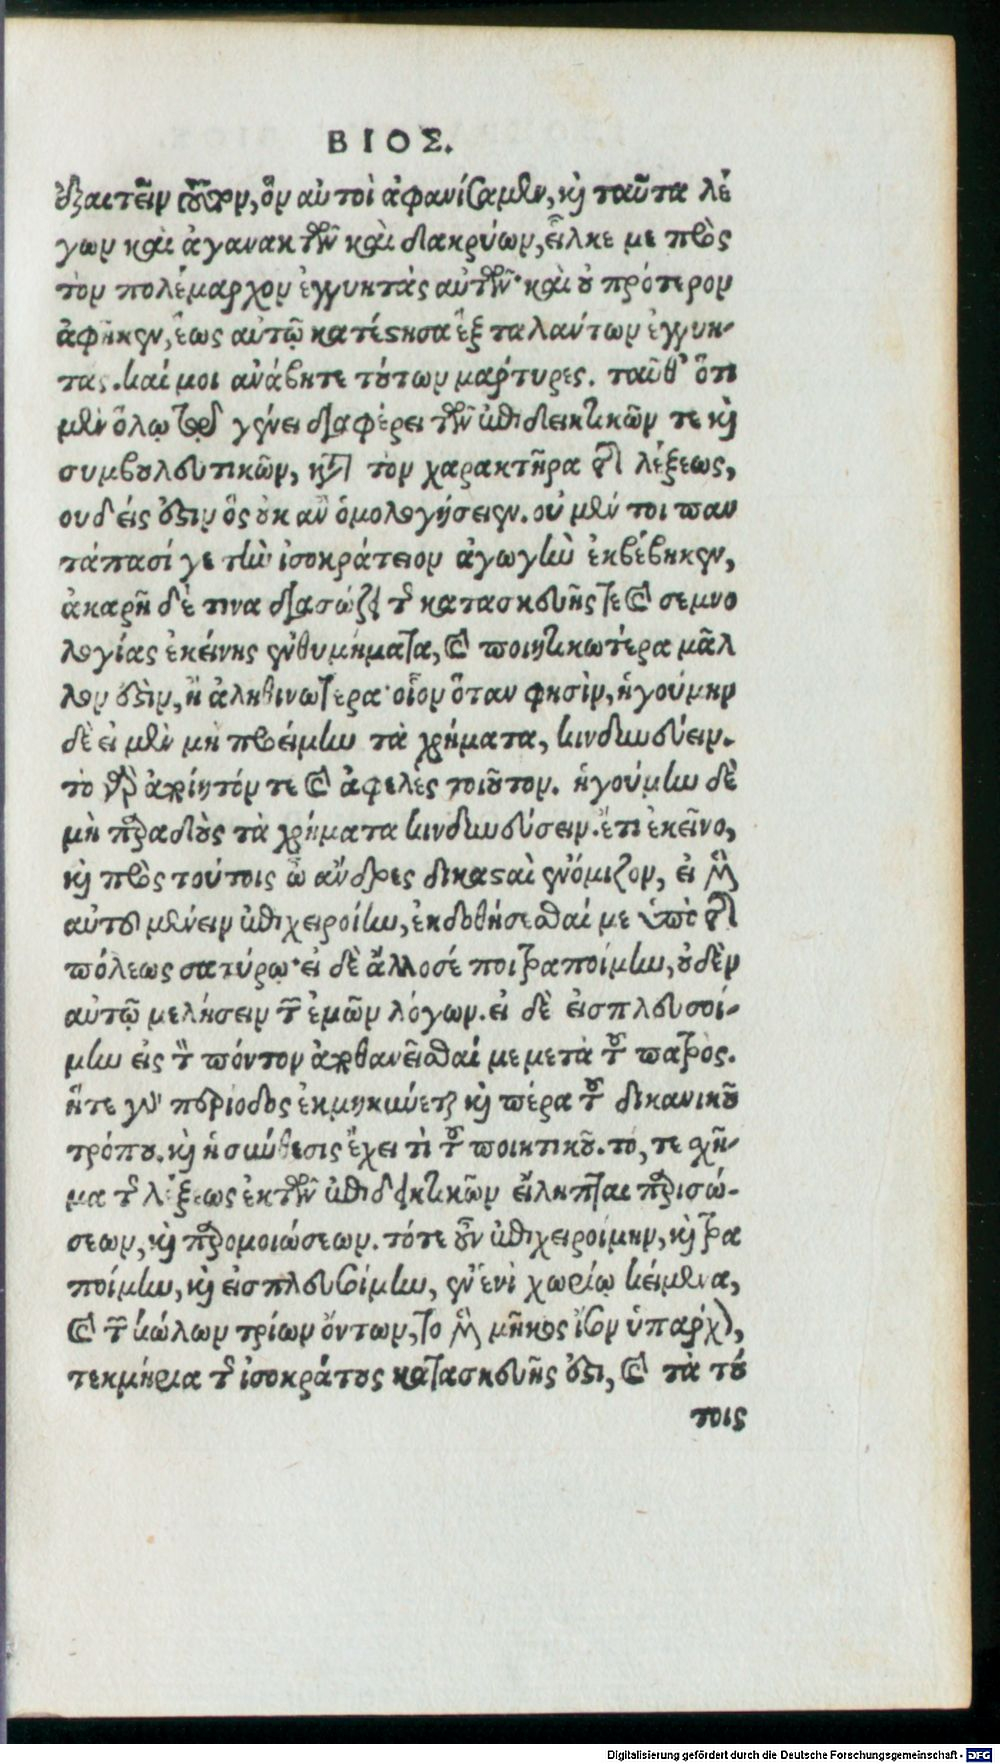 ΒΙΟΣ.
ἐξαιτεῖν τοῦτον, ὃν αὐτοὶ ἀφανίσαμεν, καὶ ταῦτα λέ
γων καὶ ἀγανακτῶν καὶ διακρύων, εἷλκε με πρὸς
τὸν πολέμαρχον ἐγγυητὰς αὐτῶν· καὶ οὐ πρότερον
ἀφῆκεν, ἕως αὐτῷ κατέστησα ἓξ ταλάντων ἐγγυη-
τάς. καί μοι ἀνάβητε τούτων μάρτυρες. ταῦθ' ὅτι
μὲν ὅλῳ τῷ γένει διαφέρει τῶν ἐπιδεικτικῶν τε καὶ
συμβουλευτικῶν, κατὰ τὸν χαρακτῆρα τῆς λέξεως,
ουδείς ἐστιν ὃς οὐκ ἂν ὁμολογήσειεν. οὐ μέν τοι παν
τάπασί γε τὴν ἰσοκράτειον ἀγωγὴν ἐκβέβηκεν,
ἀκαρῆ δὲ τινα διασώζει τῆς κατασκευῆς τε καὶ σεμνο
λογίας ἐκείνης ἐνθυμήματα, καὶ ποιητικωτέρα μᾶλ
λον ἐστὶν, ἢ ἀληθινωτερα· οἷον ὅταν φησὶν, ἡγούμην
δὲ εἰ μὲν μὴ προείμην τὰ χρήματα, κινδυνεύειν.
τὸ γὰρ ἀκρίητόν τε καὶ ἀφελὲς τοιοῦτον. ἡγούμην δὲ
μὴ παραδιδοὺς τὰ χρήματα κινδυνεύσειν. ἔτι ἐκεῖνο,
καὶ πρὸς τούτοις ὦ ἄνδρες δικασταὶ ἐνόμιζον, εἰ μὲν
αὐτοῦ μένειν ἐπιχειροίην, ἐκδοθήσεσθαί με ὑπὸ τῆς
πόλεως σατύρῳ· εἰ δὲ ἄλλοσέ ποι τραποίμην, οὐδὲν
αὐτῷ μελήσειν τῶν ἐμῶν λόγων. εἰ δὲ εἰσπλευσοί-
μην εἰς τὸν πόντον ἀποθανεῖσθαί με μετὰ τοῦ πατρός.
ἥτε γὰρ περίοδος ἐκμηκύνεται καὶ πέρα τοῦ δικανικοῦ
τρόπου. καὶ ἡ σύνθεσις ἔχει τὶ τοῦ ποιητικοῦ. τό, τε σχῆ-
μα τῆς λέξεως ἐκ τῶν ἐπιδεικτικῶν εἴληπται παρισώ-
σεων, καὶ παρομοιώσεων. τότε οὖν ἐπιχειροίμην, καὶ τρα
ποίμην, καὶ εἰσπλευσοίμην, ἐν ἑνὶ χωρίῳ κείμενα,
καὶ τῶν κώλων τρίων ὄντων, το μὲν μῆκος ἴσον ὑπάρχειν,
τεκμήρια τῆς ἰσοκράτους κατασκευῆς ἐστι, καὶ τὰ τού
τοις
Digitalisierung gefördert durch die Deutsche Forschungsgemeinschaft - DFG